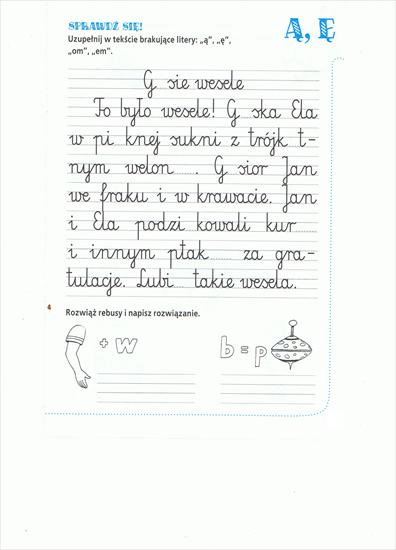 SPRAWDŹ SIĘ!
Ą, Ę
Uzupełnij w tekście brakujące litery: „ą”, „ę”,
„om”, „em”.
G sie wesele
To było wesele! G ska Ela
w pi knej sukni z trójk t-
nym welon ..... . G sior Jan
we fraku i w krawacie. Jan
i Ela podzi kowali kur ........
i innym ptak ........ za gra-
tulacje. Lubi ... takie wesela.
4
Rozwiąż rebusy i napisz rozwiązanie.
+ w
b = p